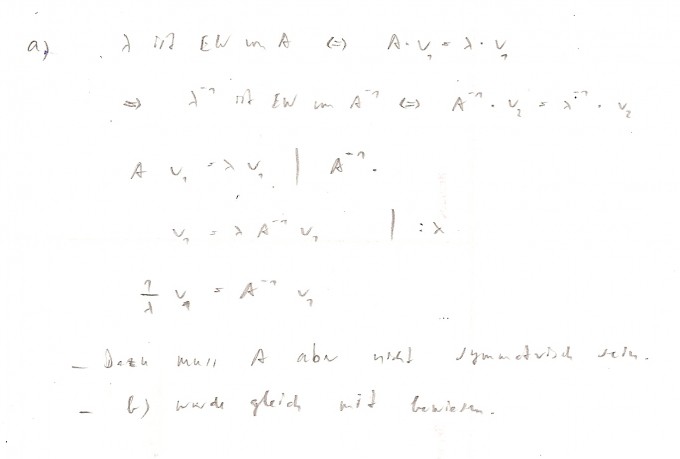 a) λ ist EW von A ⇔ A · v₁ = λ · v₁
⇒ λ⁻¹ ist EW von A⁻¹ ⇔ A⁻¹ · v₂ = λ⁻¹ · v₂
A v₁ = λ v₁ | A⁻¹ ·
v₁ = λ A⁻¹ v₁ | : λ
1/λ v₁ = A⁻¹ v₁
- Dazu muss A aber nicht symmetrisch sein.
- b) wurde gleich mit bewiesen.